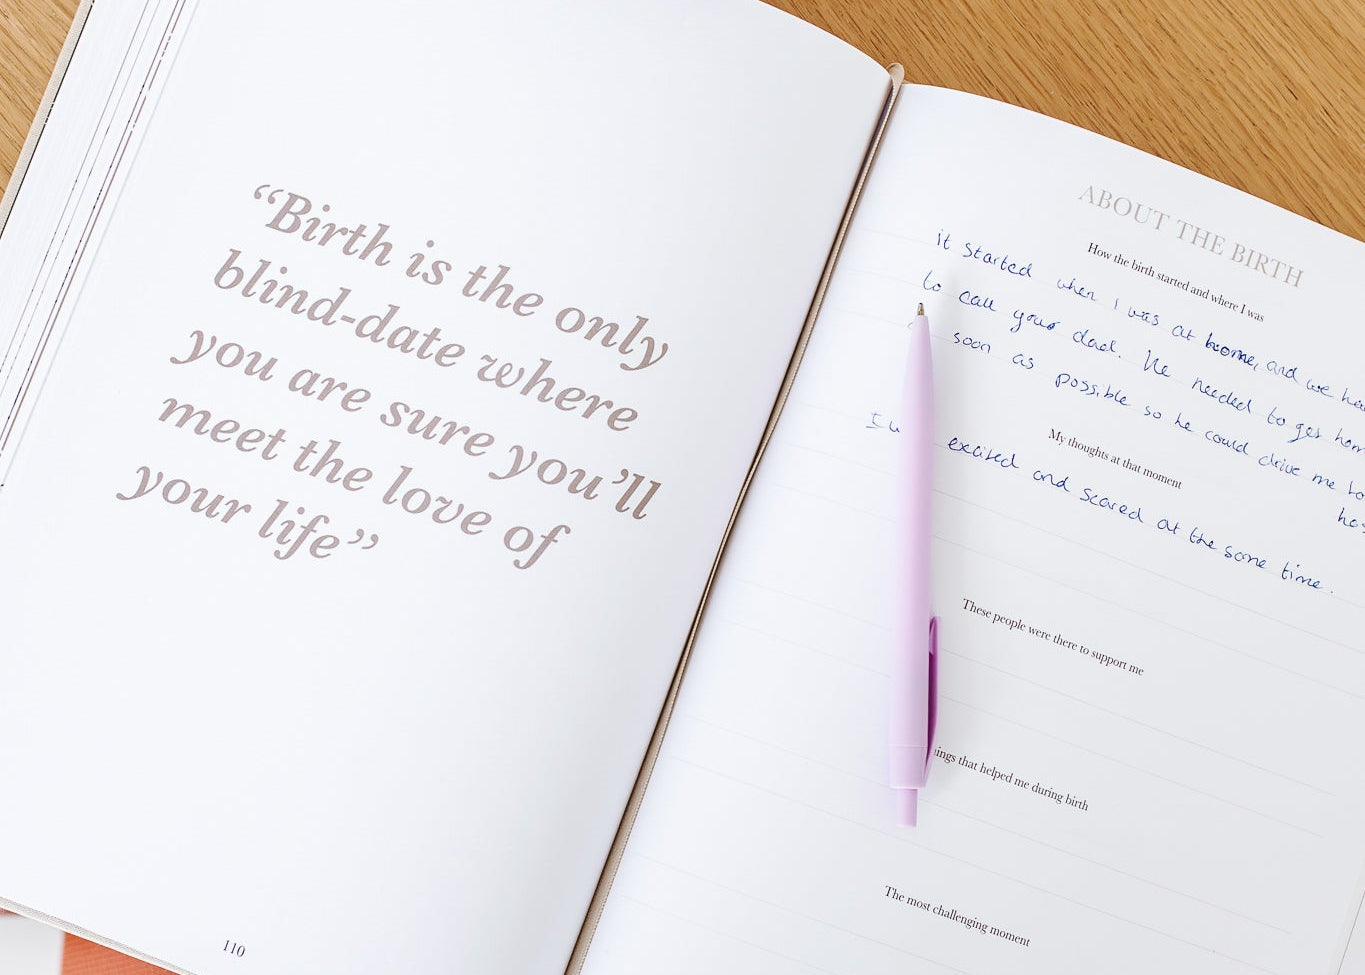 “Birth is the only
blind-date where
you are sure you’ll
meet the love of
your life”
110
ABOUT THE BIRTH
How the birth started and where I was
it started when I was at home, and we
to call your dad. He needed to get
soon as possible so he could drive me to
My thoughts at that moment
I excited and scared at the same time.
These people were there to support me
that helped me during birth
The most challenging moment